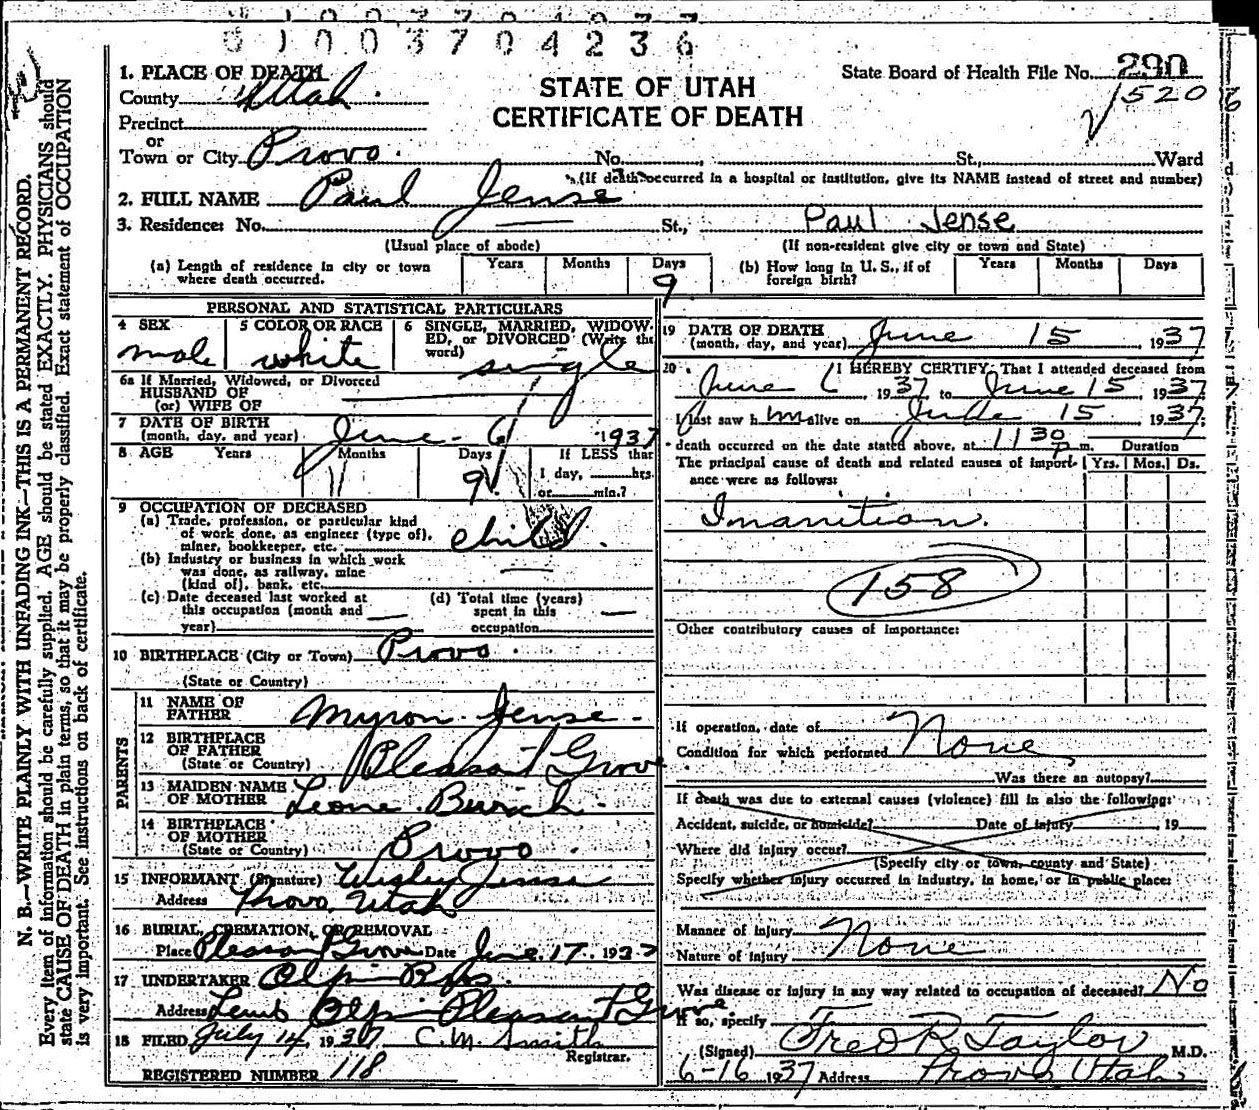 0 1 0 0 3 7 0 4 2 3 6
STATE OF UTAH
CERTIFICATE OF DEATH
State Board of Health File No. 290
520
1. PLACE OF DEATH
County Utah.
Precinct
or
Town or City Provo. No. , St., Ward
(If death occurred in a hospital or institution, give its NAME instead of street and number)
2. FULL NAME Paul Jense
3. Residence: No. St., Paul Jense
(Usual place of abode) (If non-resident give city or town and State)
(a) Length of residence in city or town where death occurred. Years Months Days 9
(b) How long in U. S., if of foreign birth? Years Months Days
PERSONAL AND STATISTICAL PARTICULARS
4 SEX male
5 COLOR OR RACE white
6 SINGLE, MARRIED, WIDOWED, or DIVORCED (Write the word) single
6a If Married, Widowed, or Divorced
HUSBAND OF
(or) WIFE OF
7 DATE OF BIRTH
(month, day, and year) June - 6 1937
8 AGE Years Months Days 9 If LESS than
1 day, hrs.
or min.?
9 OCCUPATION OF DECEASED
(a) Trade, profession, or particular kind
of work done, as engineer (type of),
miner, bookkeeper, etc. child.
(b) Industry or business in which work
was done, as railway, mine
(kind of), bank, etc. —
(c) Date deceased last worked at
this occupation (month and
year) —
(d) Total time (years)
spent in this
occupation —
10 BIRTHPLACE (City or Town) Provo.
(State or Country)
PARENTS
11 NAME OF
FATHER Myron Jense -
12 BIRTHPLACE
OF FATHER
(State or Country) Pleasant Grove
13 MAIDEN NAME
OF MOTHER Leone
14 BIRTHPLACE
OF MOTHER
(State or Country) Provo.
15 INFORMANT (Signature) Jense
Address Provo, Utah
16 BURIAL, CREMATION, OR REMOVAL
Place Pleasant Grove Date June 17 1937
17 UNDERTAKER
Address Pleasant Grove
18 FILED July 14, 1937 C. M. Smith
Registrar.
REGISTERED NUMBER 118
19 DATE OF DEATH
(month, day, and year) June 15, 1937
20 I HEREBY CERTIFY: That I attended deceased from
June 6, 1937, to June 15, 1937
I last saw him alive on June 15, 1937;
death occurred on the date stated above, at 11 30 p. m. Duration
The principal cause of death and related causes of importance were as follows: Yrs. Mos. Ds.
Inanition.
158
Other contributory causes of importance:
If operation, date of
Condition for which performed None
Was there an autopsy?
If death was due to external causes (violence) fill in also the following:
Accident, suicide, or homicide? Date of injury , 19
Where did injury occur?
(Specify city or town, county and State)
Specify whether injury occurred in industry, in home, or in public place:
Manner of injury
Nature of injury None
Was disease or injury in any way related to occupation of deceased? No
If so, specify
(Signed) Fred R Taylor M.D.
6-16 1937 Address Provo Utah
N. B.—WRITE PLAINLY WITH UNFADING INK—THIS IS A PERMANENT RECORD.
Every item of information should be carefully supplied. AGE should be stated EXACTLY. PHYSICIANS should
state CAUSE OF DEATH in plain terms, so that it may be properly classified. Exact statement of OCCUPATION
is very important. See instructions on back of certificate.